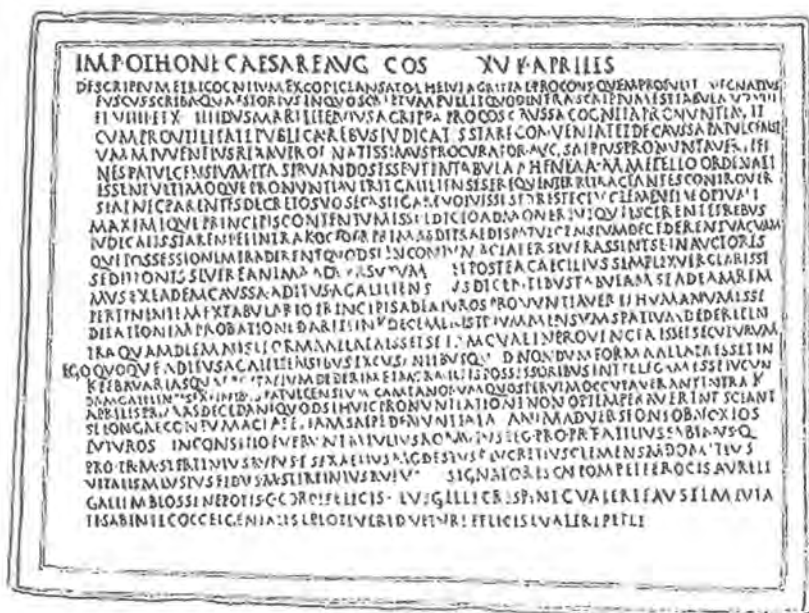 IMP OTHONE CAESARE AVG COS XV K APRILES
DESCRIPTVM ET RECOGNITVM EX CODICE ANSATO L HELVI AGRIPPAE PROCONS QVEM PROTVLIT CN EGNATIVS
FVSCVS SCRIBA QVAESTORIVS IN QVO SCRIPTVM FVIT IT QVOD INFRA SCRIPTVM EST TABVLA V
ET VIIII ET X III IDVS MART L HELVIVS AGRIPPA PROCOS CAVSSA COGNITA PRONVNTIAVIT
CVM PRO VTILITATE PVBLICA REBVS IVDICATIS STARE CONVENIAT ET DE CAVSSA PATVLCENSI
VM M IVVENTIVS RIXA VIR ORNATISSIMVS PROCVRATOR AVG SAEPIVS PRONVNTIAVERIT FI
NES PATVLCENSIVM ITA SERVANDOS ESSE VT IN TABVLA AHENEA A M METELLO ORDINATI
ESSENT VLTIMOQVE PRONVNTIAVERIT GALILLENSES FREQVENTER RETRACTANTES CONTROVER
SIA NEC PARENTES DECRETO SVO SE CASTIGARE VOLVISSE SED RESPECTV CLEMENTIAE OPTVMI
MAXIMIQVE PRINCIPIS CONTENTVM ESSE EDICTO ADMONERE VT QVIESCERENT ET REBVS
IVDICATIS STARENT ET INTRA K OCTOBR PRIMAS DE PRAEDIS PATVLCENSIVM DECEDERENT VACVAM
QVE POSSESSIONEM TRADERENT QVODSI IN CONTVMACIA PERSEVERASSENT SE IN AVCTORES
SEDITIONIS SEVERE ANIMADVERSVRVM ET POSTEA CAECILIVS SIMPLEX VIR CLARISSI
MVS EX EADEM CAVSSA ADITVS A GALILLENSIBVS DICENTIBVS TABVLAM SE AD EAM REM
PERTINENTEM EX TABVLARIO PRINCIPIS ADLATVROS PRONVNTIAVERIT HVMANVM ESSE
DILATIONEM PROBATIONI DARI ET IN K DECEMBRES TRIVM MENSVM SPATIVM DEDERIT IN
TRA QVAM DIEM NISI FORMA ALLATA ESSET SE EAM QVAE IN PROVINCIA ESSET SECVTVRVM
EGO QVOQVE ADITVS A GALILLENSIBVS EXCVSANTIBVS QVOD NONDVM FORMA ALLATA ESSET IN
K FEBRVARIAS QVAE P F SPATIVM DEDERIM ET MORAM ILLIS POSSESSORIBVS INTELLEGAM ESSE IVCVN
DAM GALILLENSES EX FINIBVS PATVLCENSIVM CAMPANORVM QVOS PER VIM OCCVPAVERANT INTRA K
APRILES PRIMAS DECEDANT QVODSI HVIC PRONVNTIATIONI NON OPTEMPERAVERINT SCIANT
SE LONGAE CONTVMACIAE ET IAM SAEPE DENVNTIATA ANIMADVERSIONI OBNOXIOS
FVTVROS IN CONSILIO FVERVNT M IVLIVS ROMVLVS LEG PRO PR T ATILIVS SABINVS Q
PRO PR M STERTINIVS RVFVS F SEX AELIVS MODESTVS P LVCRETIVS CLEMENS M DOMITIVS
VITALIS M LVSIVS FIDVS M STERTINIVS RVFVS SIGNATORES CN POMPEI FEROCIS AVRELI
GALLI M BLOSSI NEPOTIS C CORDI FELICIS L VIGELLI CRISPINI C VALERI FAVSTI M LVTA
TI SABINI L COCCEI GENIALIS L PLOTI VERI D VETVRI FELICIS L VALERI PEPLI